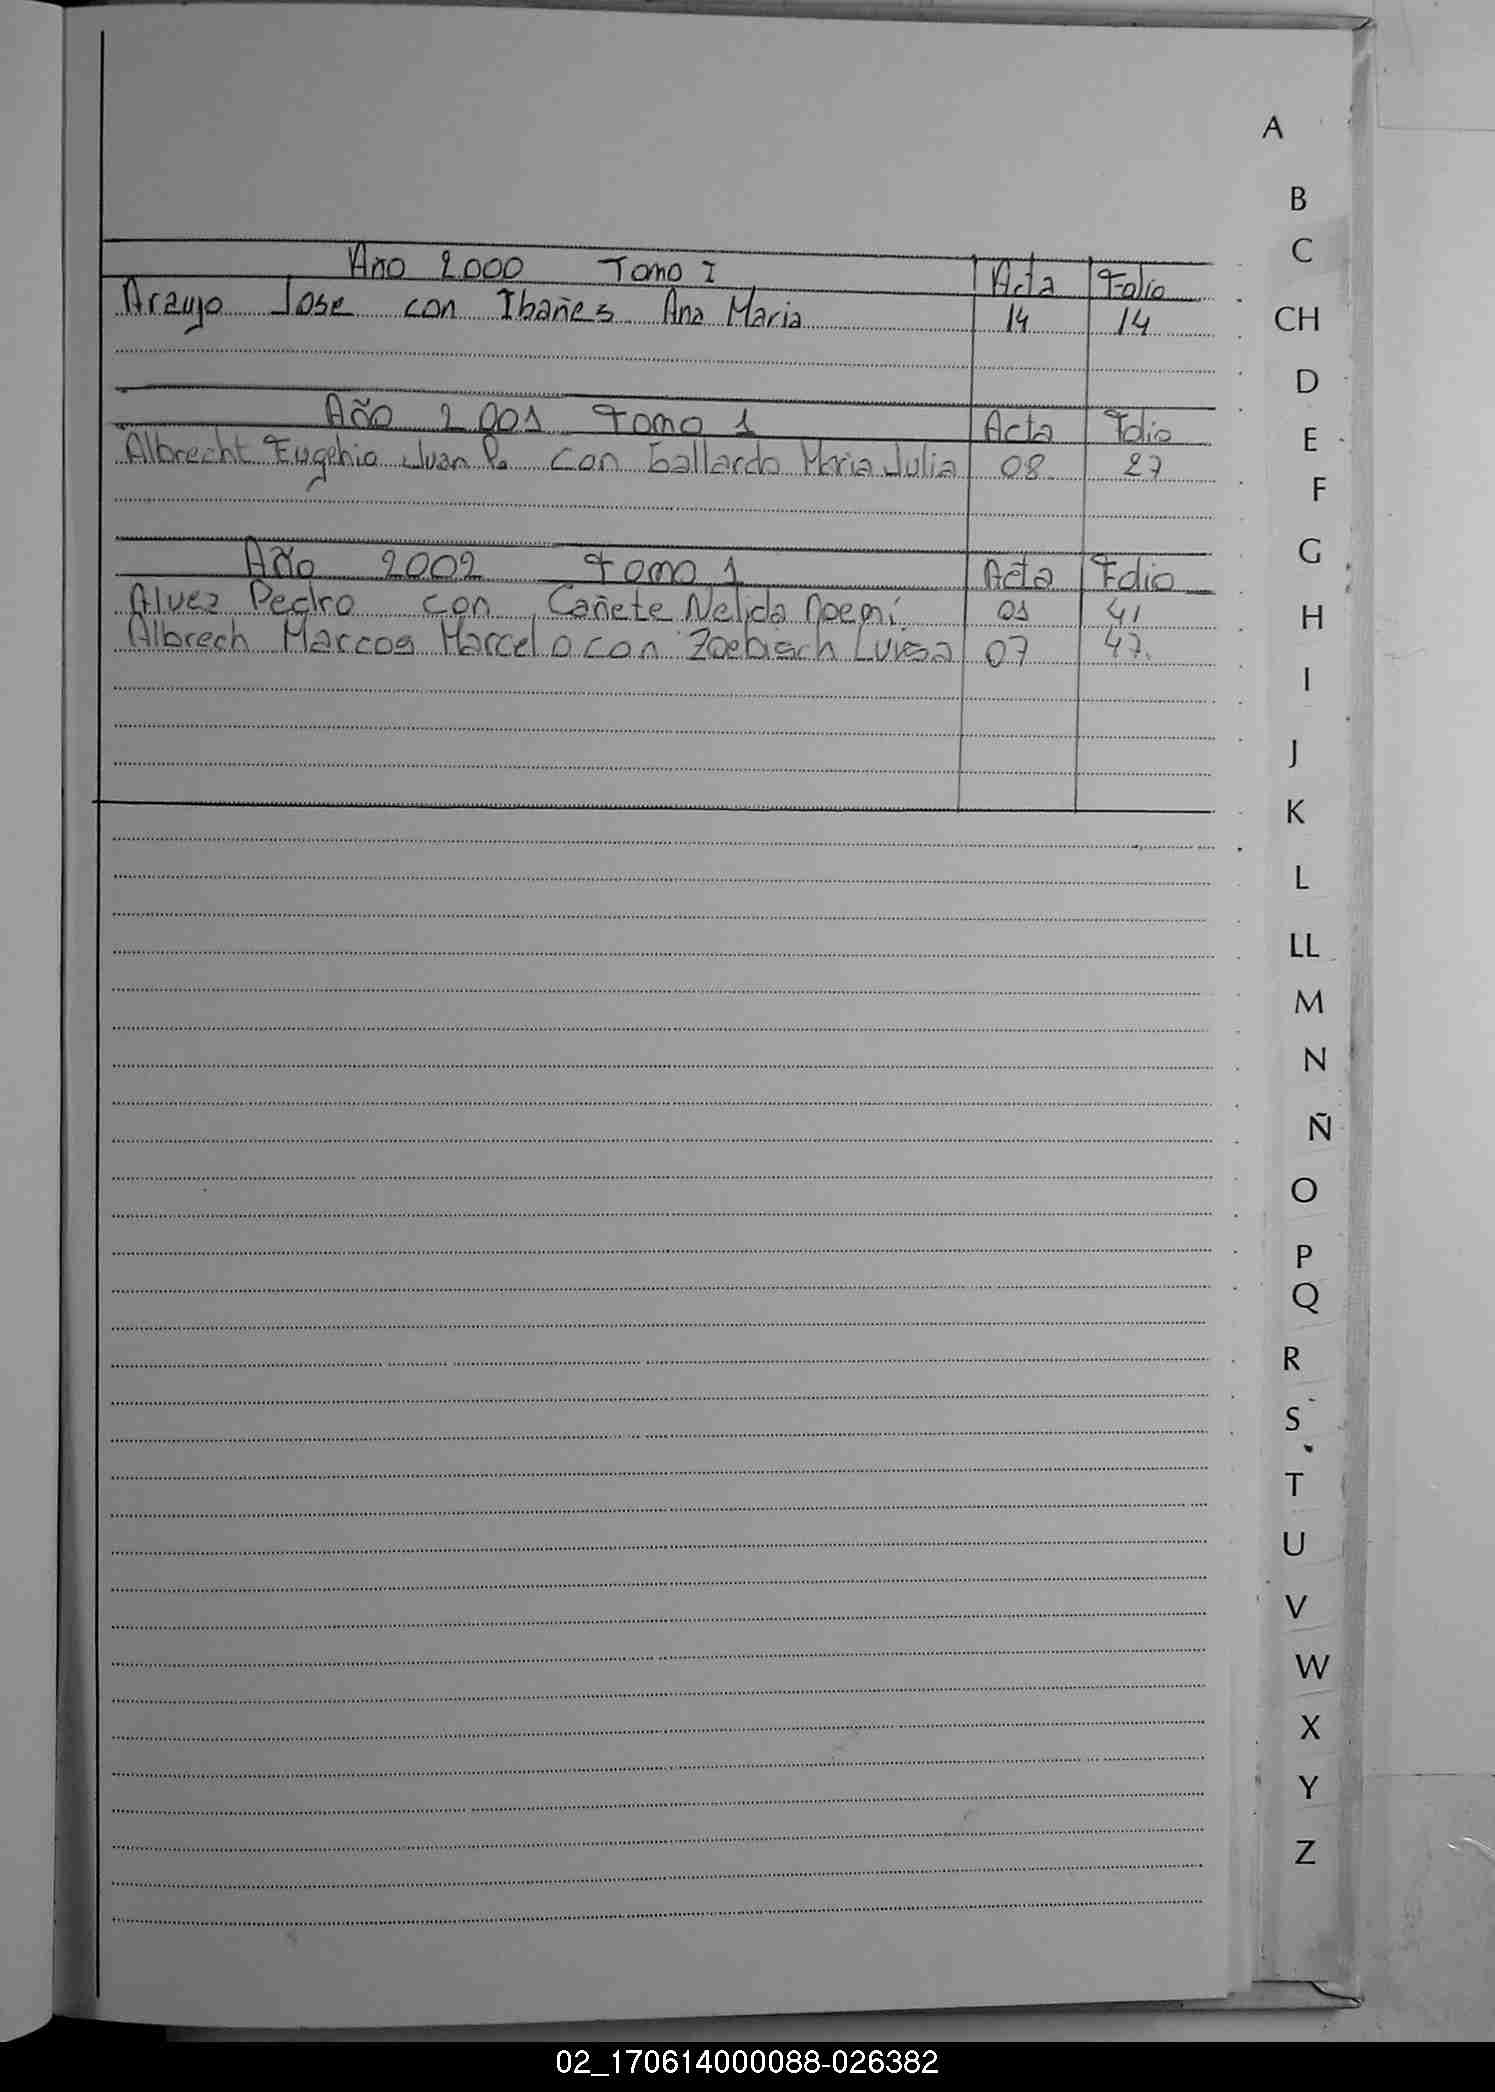 Año 2000 Tomo I Acta Folio
Araujo Jose con Ibañes Ana Maria 14 14
Año 2001 Tomo 1 Acta Folio
Albrecht Eugenio Juan R. con Gallardo Maria Julia 08 27
Año 2002 Tomo 1 Acta Folio
Alvez Pedro con Cañete Nelida Noemí 01 41
Albrech Marcos Marcelo con Zoebisch Luisa 07 47.
A
B
C
CH
D
E
F
G
H
I
J
K
L
LL
M
N
Ñ
O
P
Q
R
S
T
U
V
W
X
Y
Z
02_170614000088-026382